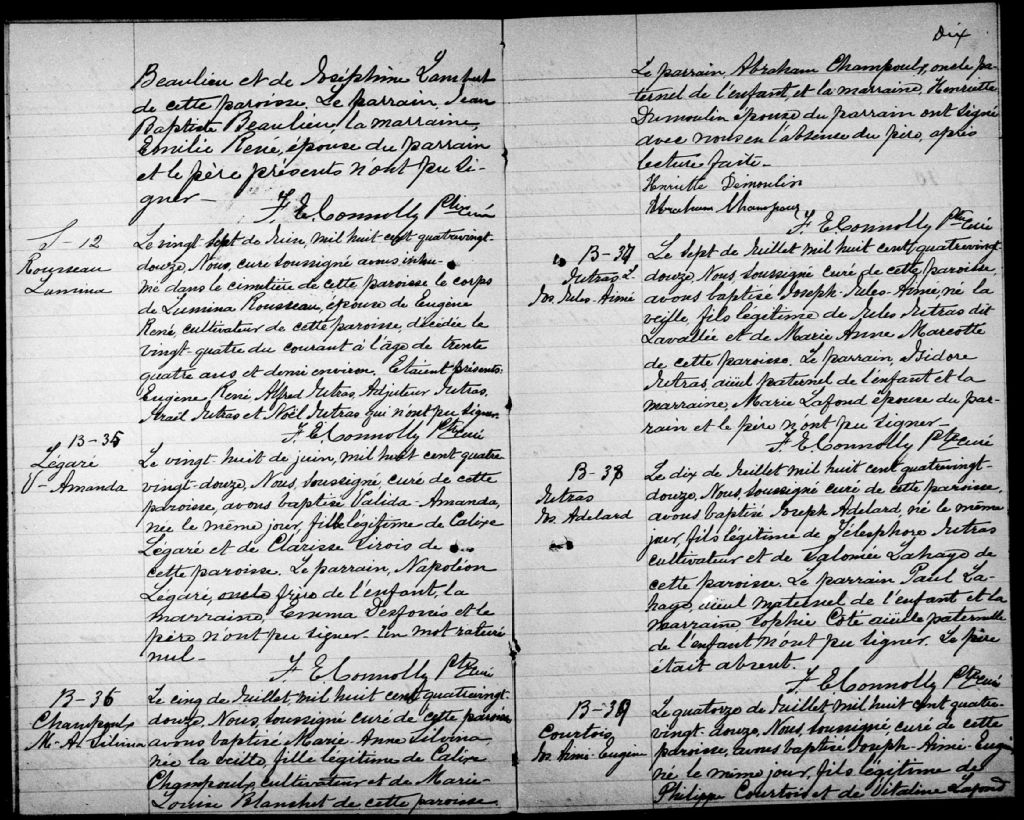 Beaulieu et de Joséphine Lambert
de cette paroisse. Le parrain, Jean
Baptiste Beaulieu, la marraine,
Emilie René, épouse du parrain
et le père présents n'ont pu si-
gner—
F. E. Connolly Ptre curé
S-12
Rousseau
Lumina
Le vingt sept de Juin, mil huit cent quatrevingt-
douze, Nous, curé soussigné avons inhu-
mé dans le cimetière de cette paroisse le corps
de Lumina Rousseau, épouse de Eugène
René, cultivateur de cette paroisse, décédée le
vingt-quatre du courant à l'âge de trente
quatre ans et demi environ. Etaient présents:
Eugène René, Alfred Jutras, Adjuteur Jutras,
Israil Jutras et Noël Jutras qui n'ont pu signer.
F. E. Connolly Ptre curé
B-35
Légaré
V- Amanda
Le vingt huit de juin, mil huit cent quatre
vingt-douze, Nous, soussigné, curé de cette
paroisse, avons baptisé Valida-Amanda,
née le même jour, fille légitime de Calixe
Légaré et de Clarisse Sirois de
cette paroisse. Le parrain, Napoléon
Légaré, frère de l'enfant, la
marraine, Emma et le
père n'ont pu signer. Un mot raturé
nul—
F. E. Connolly Ptre curé
B-36
Champoux
M-A. Silvina
Le cinq de Juillet, mil huit cent quatrevingt-
douze, Nous, soussigné curé de cette paroisse,
avons baptisé Marie-Anne Silvina,
née la veille, fille légitime de Calixe
Champoux, cultivateur et de Marie-
Louise Blanchet de cette paroisse
Dix
Le parrain, Abraham Champoux, oncle pa-
ternel de l'enfant, et la marraine, Henriette
Dumoulin épouse du parrain ont signé
avec nous en l'absence du père, après
lecture faite—
Henriette Demoulin
Abraham Champoux
F. E. Connolly Ptre curé
B-37
Jutras L.
Jos. Jules-Aimé
Le sept de Juillet mil huit cent quatrevingt-
douze, Nous soussigné curé de cette paroisse,
avons baptisé Joseph-Jules-Aimé, né la
veille, fils légitime de Jules Jutras dit
Lavallée et de Marie Anne Marcotte
de cette paroisse. Le parrain, Isidore
Jutras, aïeul paternel de l'enfant et la
marraine, Marie Lafond épouse du par-
rain et le père n'ont pu signer—
F. E. Connolly Ptre curé
B-38
Jutras
Jos. Adelard
Le dix de Juillet mil huit cent quatrevingt-
douze, Nous, soussigné curé de cette paroisse,
avons baptisé Joseph Adelard, né le même
jour, fils légitime de Télesphore Jutras
cultivateur et de Salomée Lahaye de
cette paroisse. Le parrain Paul La-
haye, aïeul maternel de l'enfant et la
marraine, Sophie Coté aïeule paternelle
de l'enfant n'ont pu signer. Le père
était absent.
F. E. Connolly Ptre curé
B-39
Courtois
Jos Aimé-Eugène
Le quatorze de Juillet mil huit cent quatre-
vingt-douze, Nous, soussigné, curé de cette
paroisse, avons baptisé Joseph-Aimé-Eugène
né le même jour, fils légitime de
Philippe Courtois et de Vitaline Lafond